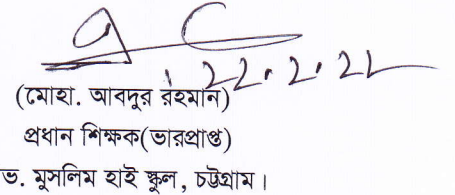 22.2.22
(মোহা. আবদুর রহমান)
প্রধান শিক্ষক(ভারপ্রাপ্ত)
ভ. মুসলিম হাই স্কুল, চট্টগ্রাম।